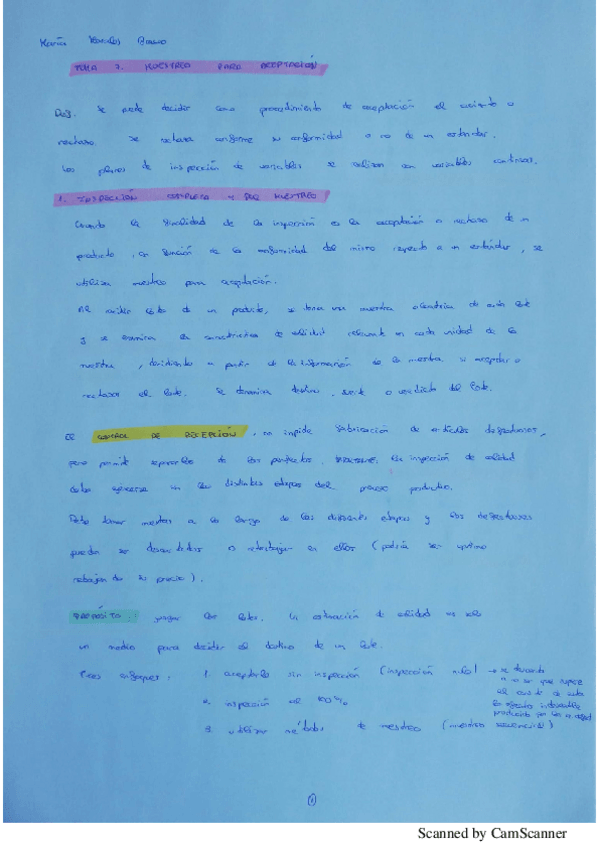 TEMA 7. MUESTREO PARA ACEPTACIÓN
Def. Se puede decidir como procedimiento de aceptación el
rechazo. Se rechaza conforme su conformidad o no de un estándar.
Los planes de inspección de variables se utilizan con variables continuas.
1. INSPECCIÓN COMPLETA Y POR MUESTREO
Cuando la finalidad de la inspección es la aceptación o rechazo de un
producto, en función de la conformidad del mismo respecto a un estándar, se
utiliza muestreo para aceptación.
Al recibir lotes de un producto, se toma una muestra aleatoria de cada lote
y se examina la característica de calidad relevante en cada unidad de la
muestra, decidiendo a partir de la información de la muestra si aceptar o
rechazar el lote. Se denomina destino, suerte o veredicto del lote.
El CONTROL DE RECEPCIÓN, no impide fabricación de artículos defectuosos,
pero permite separarlos de los perfectos. La inspección de calidad
debe ejercerse en las distintas etapas del proceso productivo.
Debe tomar muestras a lo largo de las diferentes etapas y los defectuosos
puedan ser desechados o retrabajar en ellos (podría ser óptimo
rebajando su precio).
PROPÓSITO: juzgar los lotes. La estimación de calidad es solo
un medio para decidir el destino de un lote.
Tres enfoques: 1. aceptarlo sin inspección (inspección nula) → se descarta
a no ser que supere
el coste de esta
los efectos indeseables
producidos por la
2. inspección al 100%
3. utilizar métodos de muestreo (muestreo secuencial)
1
Scanned by CamScanner